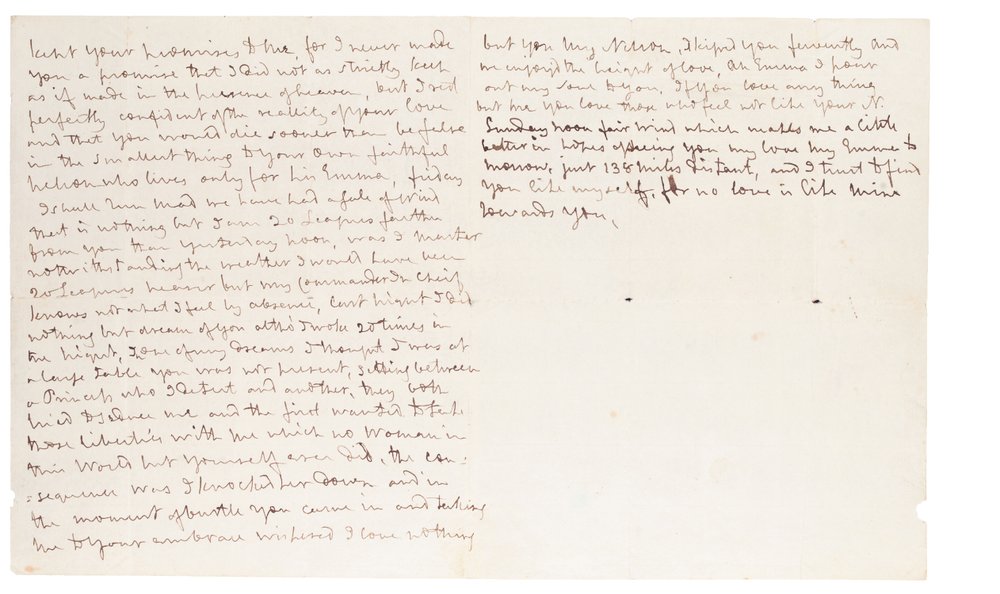 kept your promises to me, for I never made
you a promise that I did not as strictly keep
as if made in the presence of heaven, but I rest
perfectly confident of the reallity of your love
and that you would die sooner than be false
in the smallest thing to your own faithful
Nelson who lives only for his Emma, friday
I shall run mad we have had a gale of Wind
that is nothing but I am 20 Leagues farther
from you than yesterday noon, was I master
notwithstanding the weather I would have been
20 Leagues nearer but my Commander In Cheif
knows not what I feel by absence, last night I did
nothing but dream of you altho' I woke 20 times in
the night, In one of my dreams I thought I was at
a large Table you was not present, sitting between
a Princess who I detest and another, they both
tried to seduce me and the first wanted to take
those liberties with me which no Woman in
this World but yourself ever did, the con=
=sequence was I knocked her down and in
the moment of bustle you came in and taking
me to your embrace wispered I love nothing
but you my Nelson, I kissed you fervently and
we enjoy'd the height of love, Ah Emma I pour
out my soul to you, If you love any thing
but me you love those who feel not like your N.
Sunday noon fair Wind which makes me a little
better in hopes of seeing you my love my Emma to
morrow, just 138 miles distant, and I trust to find
you like myself, for no love is like mine
towards you,